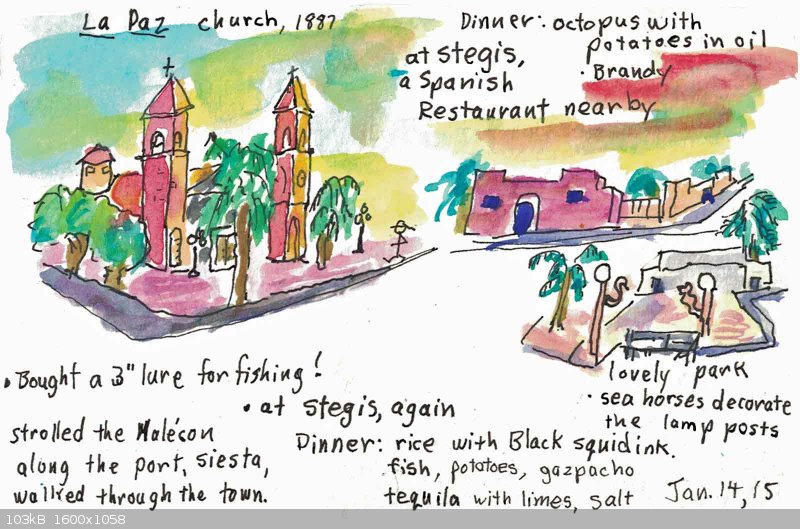 La Paz church, 1887
Dinner: octopus with
potatoes in oil
· Brandy
at stegis,
a Spanish
Restaurant nearby
lovely park
· sea horses decorate
the lamp posts
· Bought a 3" lure for fishing!
strolled the Malécon
along the port, siesta,
walked through the town.
· at stegis, again
Dinner: rice with Black squid ink.
fish, potatoes, gazpacho
tequila with limes, salt
Jan. 14, 15
103kB 1600x1058